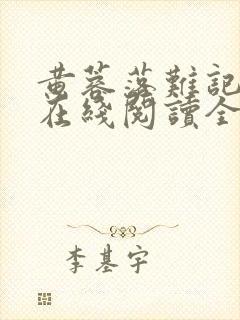 黄蓉落難記
在綫閱讀全
李基宇